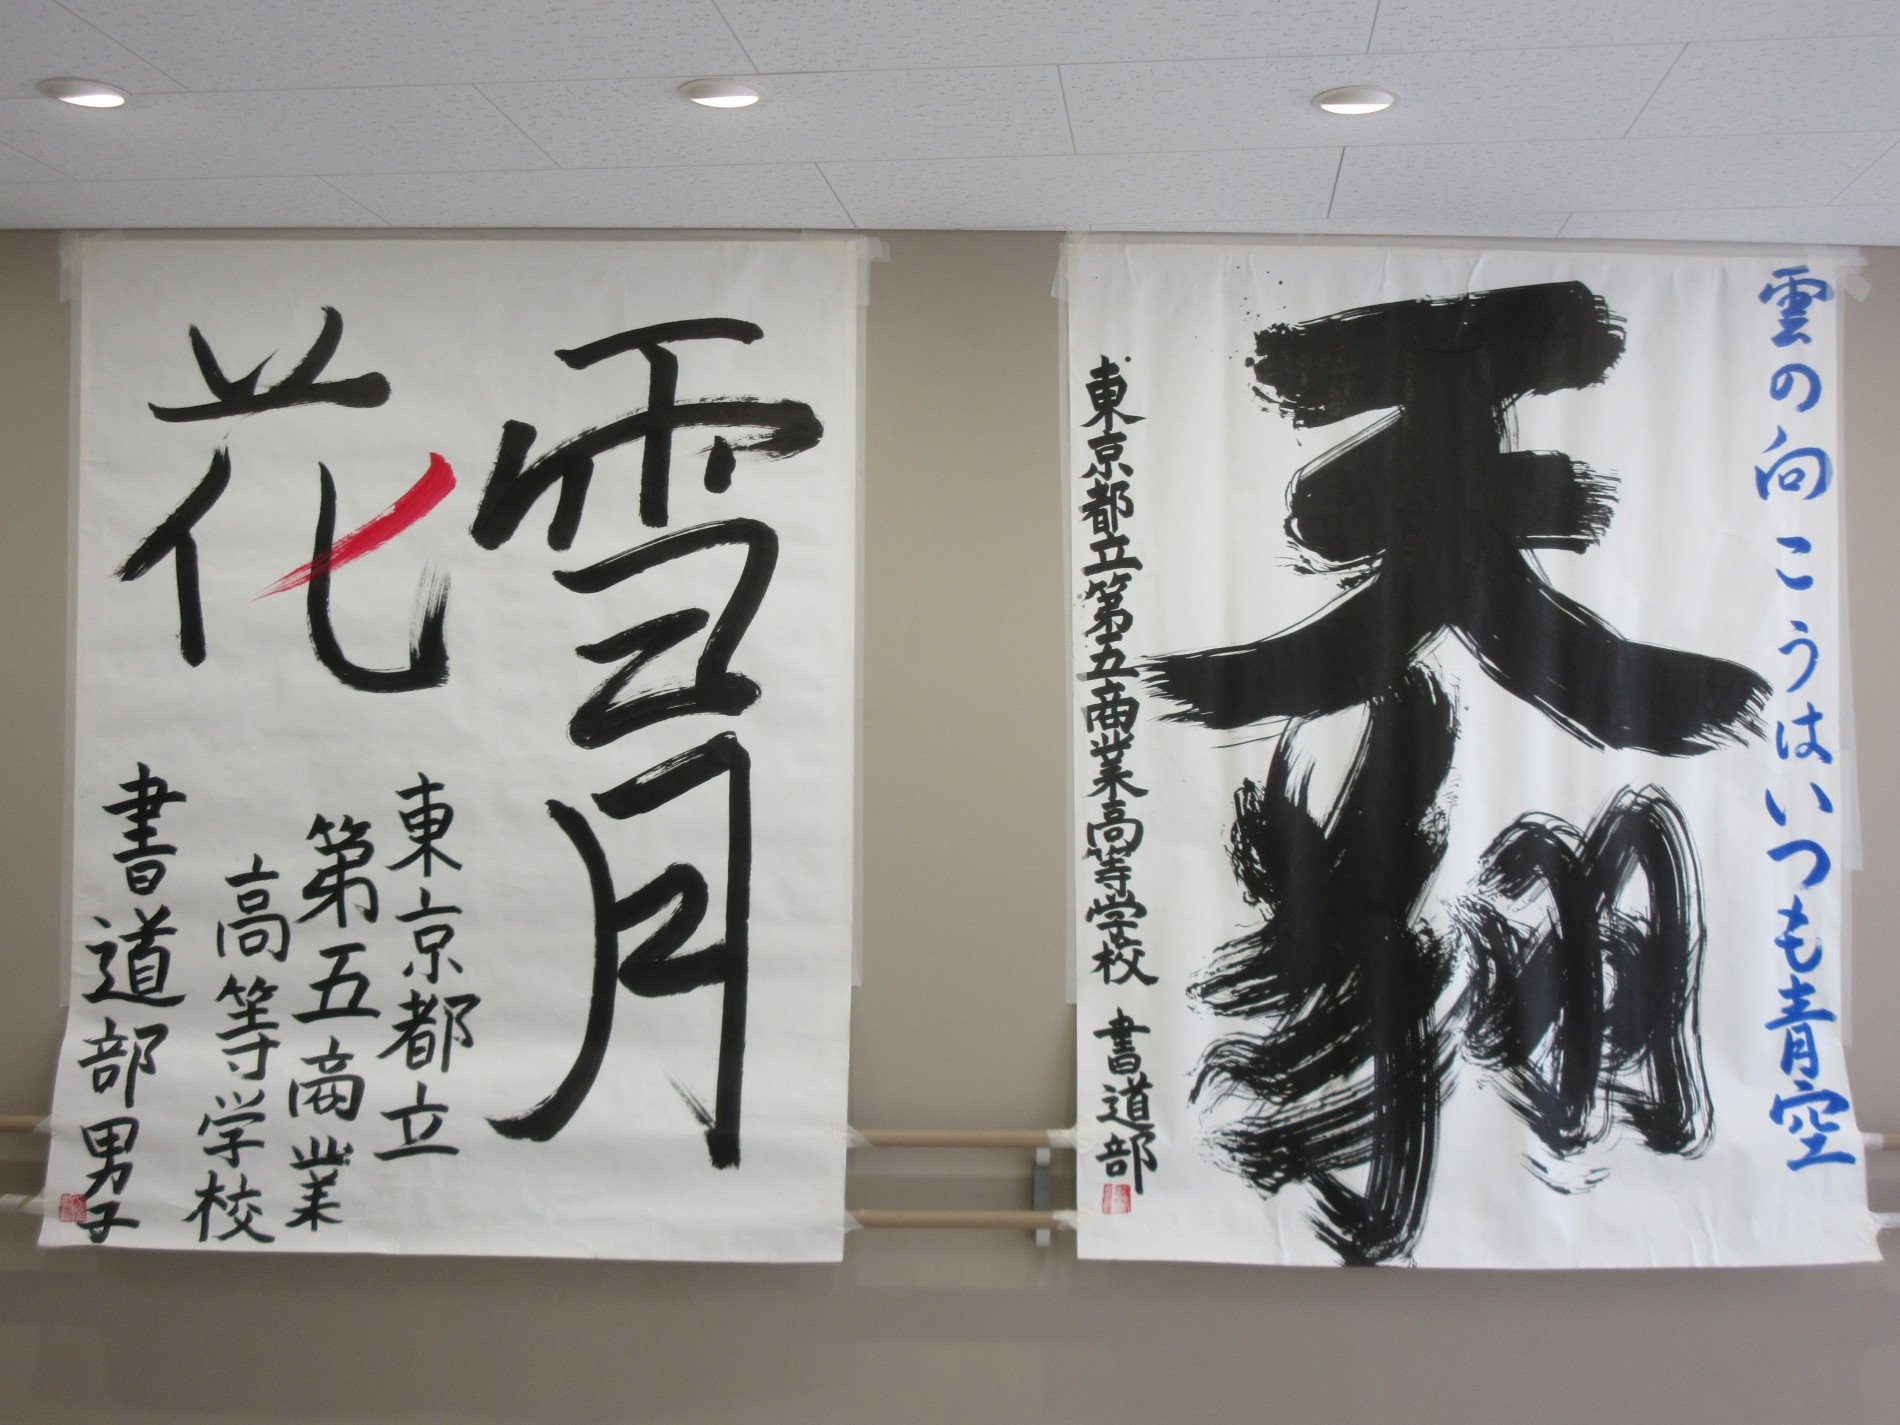 雪月
花
東京都立
第五商業
高等学校
書道部男子
雲の向こうはいつも青空
天翔
東京都立第五商業高等学校 書道部